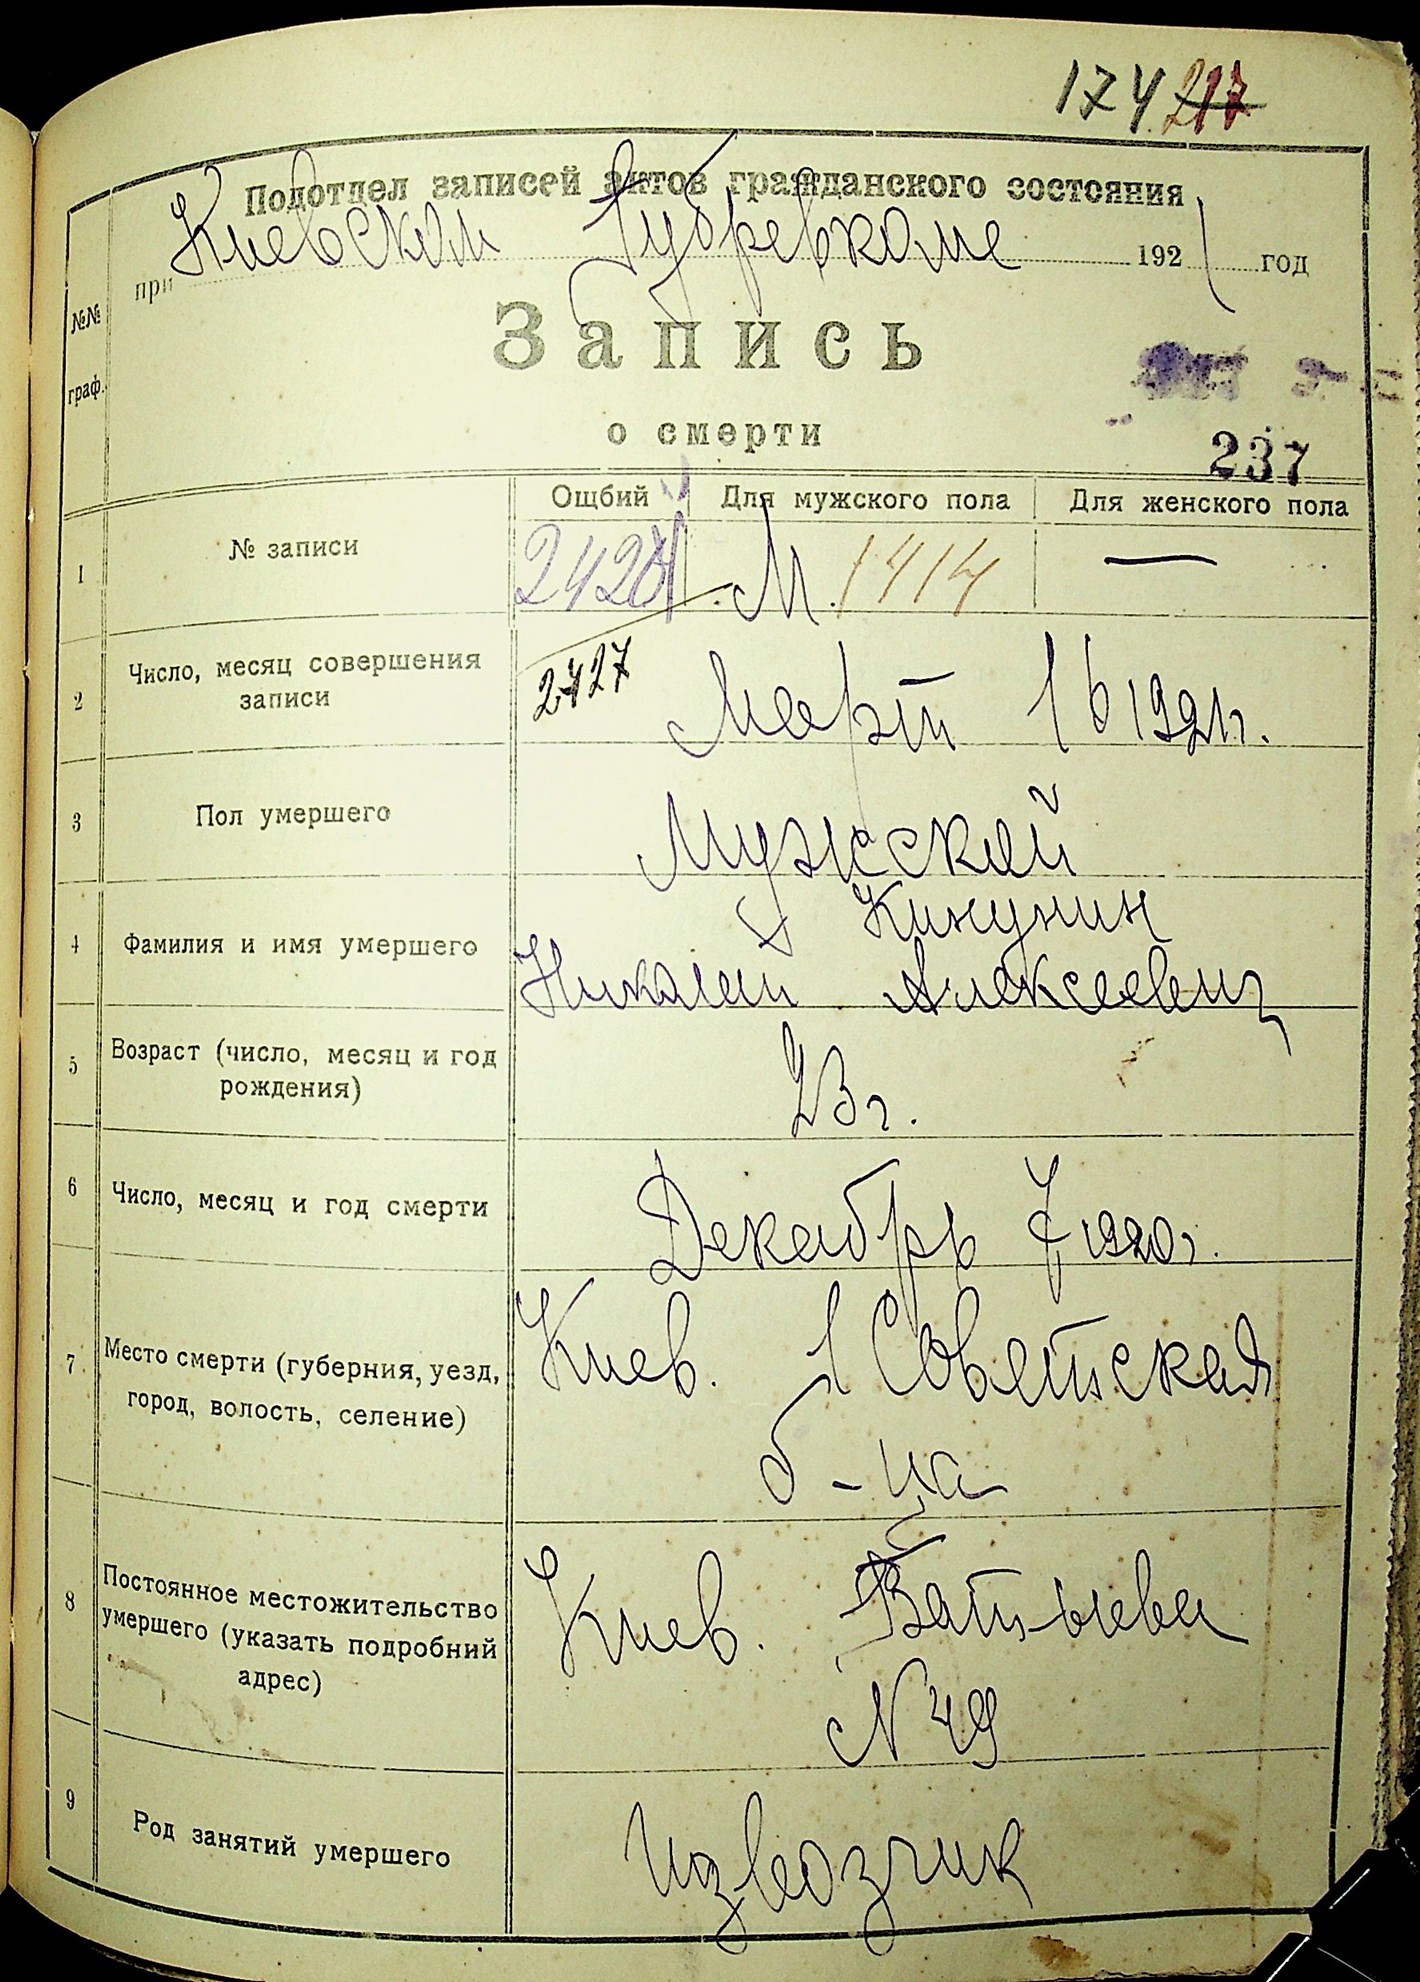 174 217
Подотдел записей актов гражданского состояния
при Киевском Губревкоме 1921 год
№№ граф.
Запись
о смерти
237
Ощбий Для мужского пола Для женского пола
1 № записи М. 1414 —
2427
2 Число, месяц совершения записи Март 16 1921 г.
3 Пол умершего Мужской
4 Фамилия и имя умершего
Николай Алексеевич
5 Возраст (число, месяц и год рождения) 23 г.
6 Число, месяц и год смерти Декабрь 7 1920 г.
7 Место смерти (губерния, уезд, Киев. 1 Советская
город, волость, селение) б-ца
8 Постоянное местожительство Киев.
умершего (указать подробний
адрес) N 49
9 Род занятий умершего извозчик